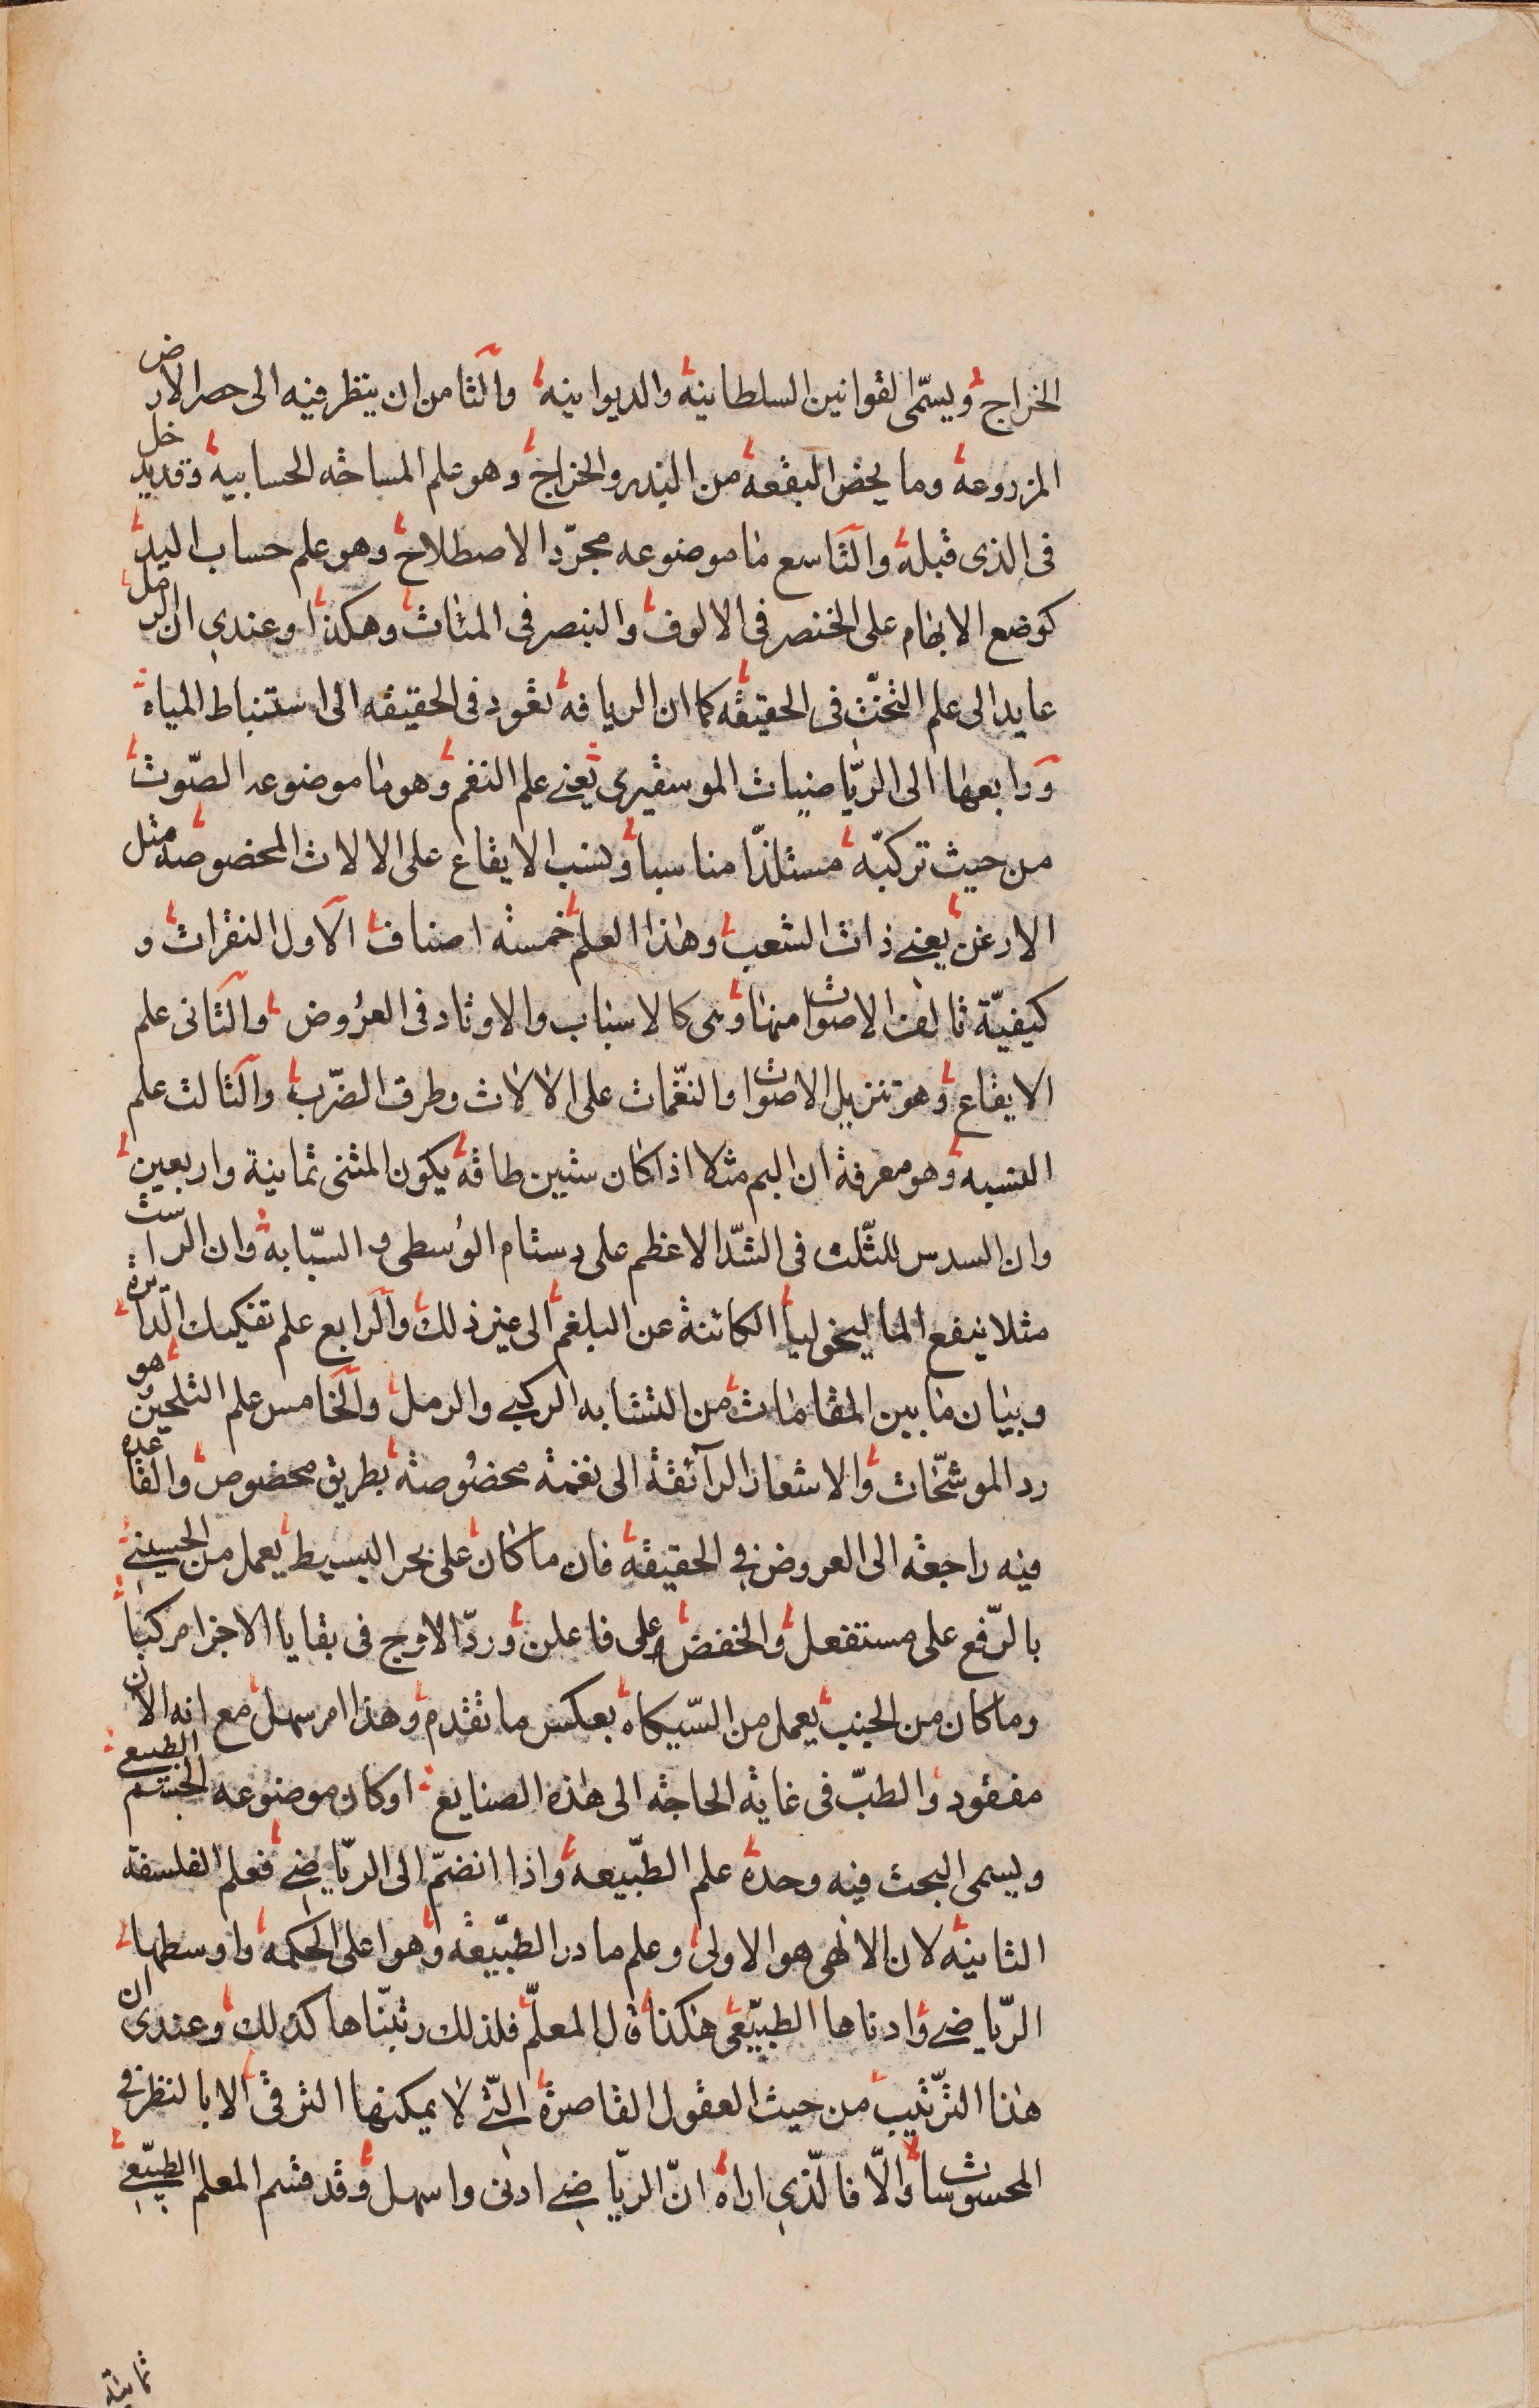 الخراج ويسمّى القوانين السلطانية والديوانيه والثامن ان ينظر فيه الى حصر الارض
المزروعة وما يخص البقعة من البذر والخراج وهو علم المساحه الحسابيه وقد يدخل
فى الذى قبله والتاسع ما موضوعه مجرّد الاصطلاح وهو علم حساب اليد
كوضع الابهام على الخنصر فى الالوف والبنصر فى المئات وهكذا وعندى ان الرمل
عايد الى علم التخت فى الحقيقه كما ان الريافة تعود فى الحقيقه الى استنباط المياه
ورابعها الى الرّياضيات الموسقيرى يعنى علم النغم وهو ما موضوعه الصّوت
من حيث تركبّه مستلذّا مناسبا ونسب الايقاع على الالات المخصوصه مثل
الارغن يعنى ذات الشعب وهذا العلم خمسة اصناف الاول النقرات و
كيفيّة تالف الاصوات منها وهى كالاسباب والاوتاد فى العروض والثانى علم
الايقاع وهو تنزيل الاصوات والنغّمات على الالات وطرق الضّرب والثالث علم
النسبه وهو معرفة ان البم مثلا اذا كان ستين طاقه يكون المثنى ثمانية واربعين
وان السدس للثّلث فى الشّد الاعظم على دستام الوسطى و السّبابة وان الراست
مثلا ينفع الماليخوليا الكائنة عن البلغم الى غير ذلك والرابع علم تفكيك الدّائرة
وبيان ما بين المقامات من التشابه الركبى والرمل والخامس علم التلحين هو
رد الموشّحات والاشعار الرآئقة الى نغمة مخصوصة بطريق مخصوص والقاعده
فيه راجعه الى العروض فى الحقيقه فان ما كان على بحر البسيط يعمل من الحسينى
بالرّفع على مستفعل والخفض على فاعلن وردّ الاوج فى بقايا الاجزا مركبا
وما كان من الجنب يعمل من السّيكاه بعكس ما تقدم وهذا امر سهل مع انه الان
مفقود والطبّ فى غاية الحاجه الى هذه الصنايع او كان موضوعه الجسم الطبيعى
ويسمى البحث فيه وحده علم الطّبيعه واذا انضمّ الى الرّياضى فعلم الفلسفة
الثانيه لان الالهى هو الاولى وعلم ما درا الطبّيعه وهو اعلى الحكمه واوسطها
الرّياضى وادناها الطبيّعى هكذا قال المعلّم فلذلك رتبّناها كذلك وعندى ان
هذا التّرتيب من حيث العقول القاصرة التّى لا يمكنها الترقى الا بالنظر فى
المحسوسات والّا فالّذى اراه انّ الرّياضى ادنى واسهل وقد قسم المعلم الطبيّعى
ثمانية